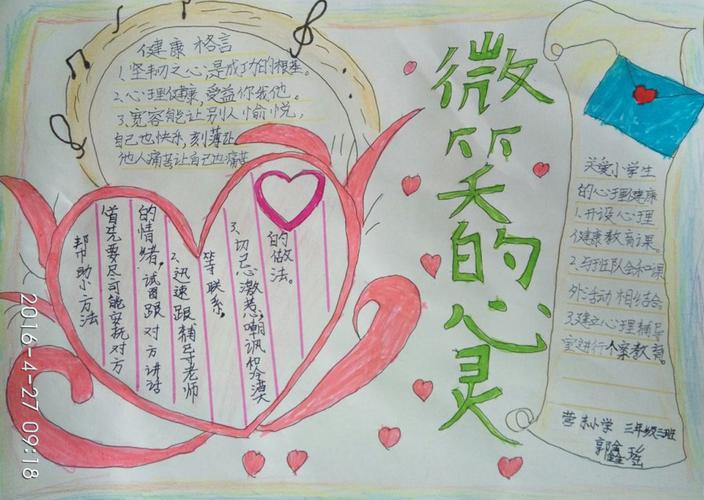 健康格言
1.坚韧之心是成功的根基。
2.心理健康,受益你我他。
3.宽容能让别人愉悦,
自己也快乐,刻薄让
他人痛苦让自己也痛苦
微笑的心灵
关爱小学生
的心理健康
1.开设心理
健康教育课。
2.与班队会和课
外活动相结合。
3.建立心理辅导
室进行个案教育。
营东小学 三年级三班
郭鑫瑶
帮助小方法
首先要尽可能安抚对方
的情绪,试着跟对方讲话
2.迅速跟辅导老师
等联系。
3.切忌激惹,嘲讽和冷漠
的做法。
2016-4-27 09:18